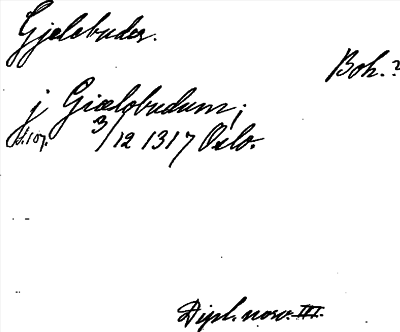 Gjælebuder.
Boh.?
j Giælobudum;
s. 107. 3/12 1317 Oslo.
Dipl. norv. III.